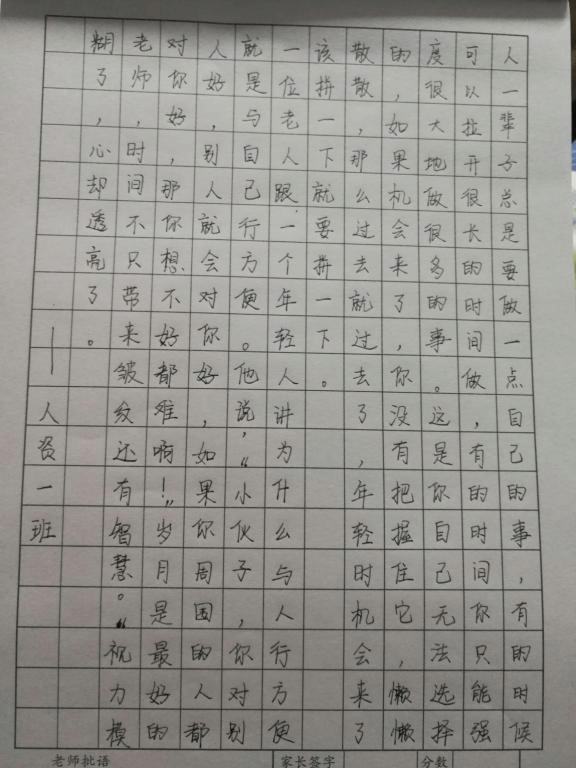 人一辈子总是要做一点自己的事,有的时候
可以拉开很长的时间做,有的时间你只能强
度很大地做很多的事。远是你自己无法选择
的,如果机会来了,你没有把握住它,懒懒
散散,那么过去就过去了,年轻时机会来了
该拼一下就要拼一下。
一位老人跟一个年轻人讲为什么与人行方便
就是与自己行方便。他说:“小伙子,你对别
人好,别人就会对你好,如果你周围的人都
对你好,那你想不好都难啊!”岁月是最好的
老师,时间不只带来皱纹还有智慧。“视力模
糊了,心却透亮了。
——人资一班
老师批语 家长签字 分数